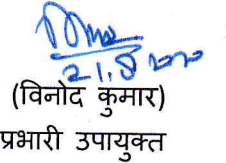 21.8.2020
(विनोद कुमार)
प्रभारी उपायुक्त